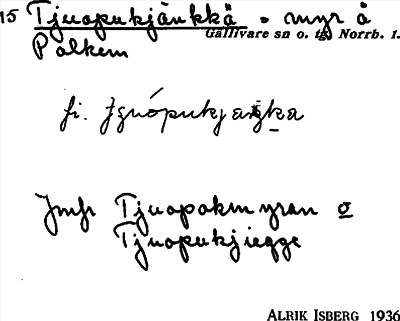 15 Tjuopukjänkkä = myr å
Gällivare sn o. tg. Norrb. l.
Palkem
fi.
Jmfr Tjuopokmyran o
Tjuopukjiegge
ALRIK ISBERG 1936